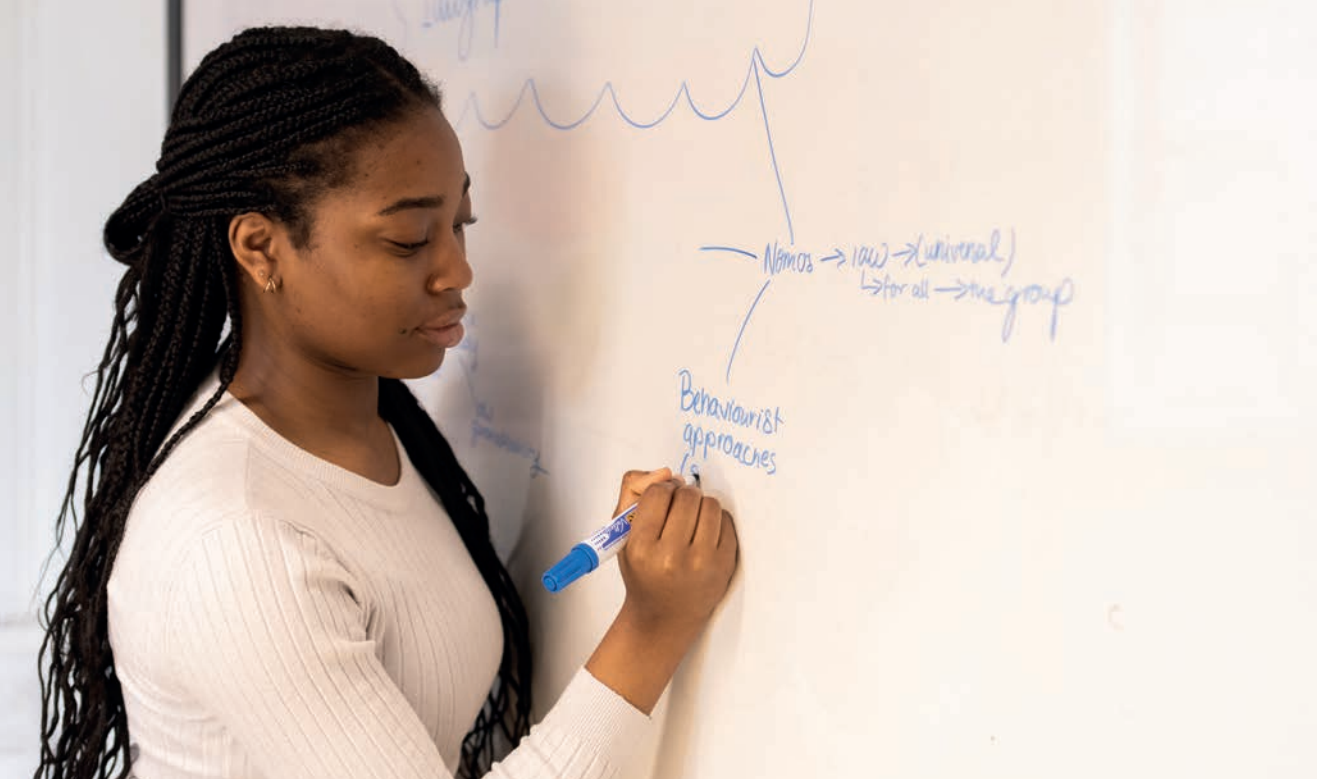 Nomos → law → (universal)
↳ for all → the group
Behaviourist
approaches